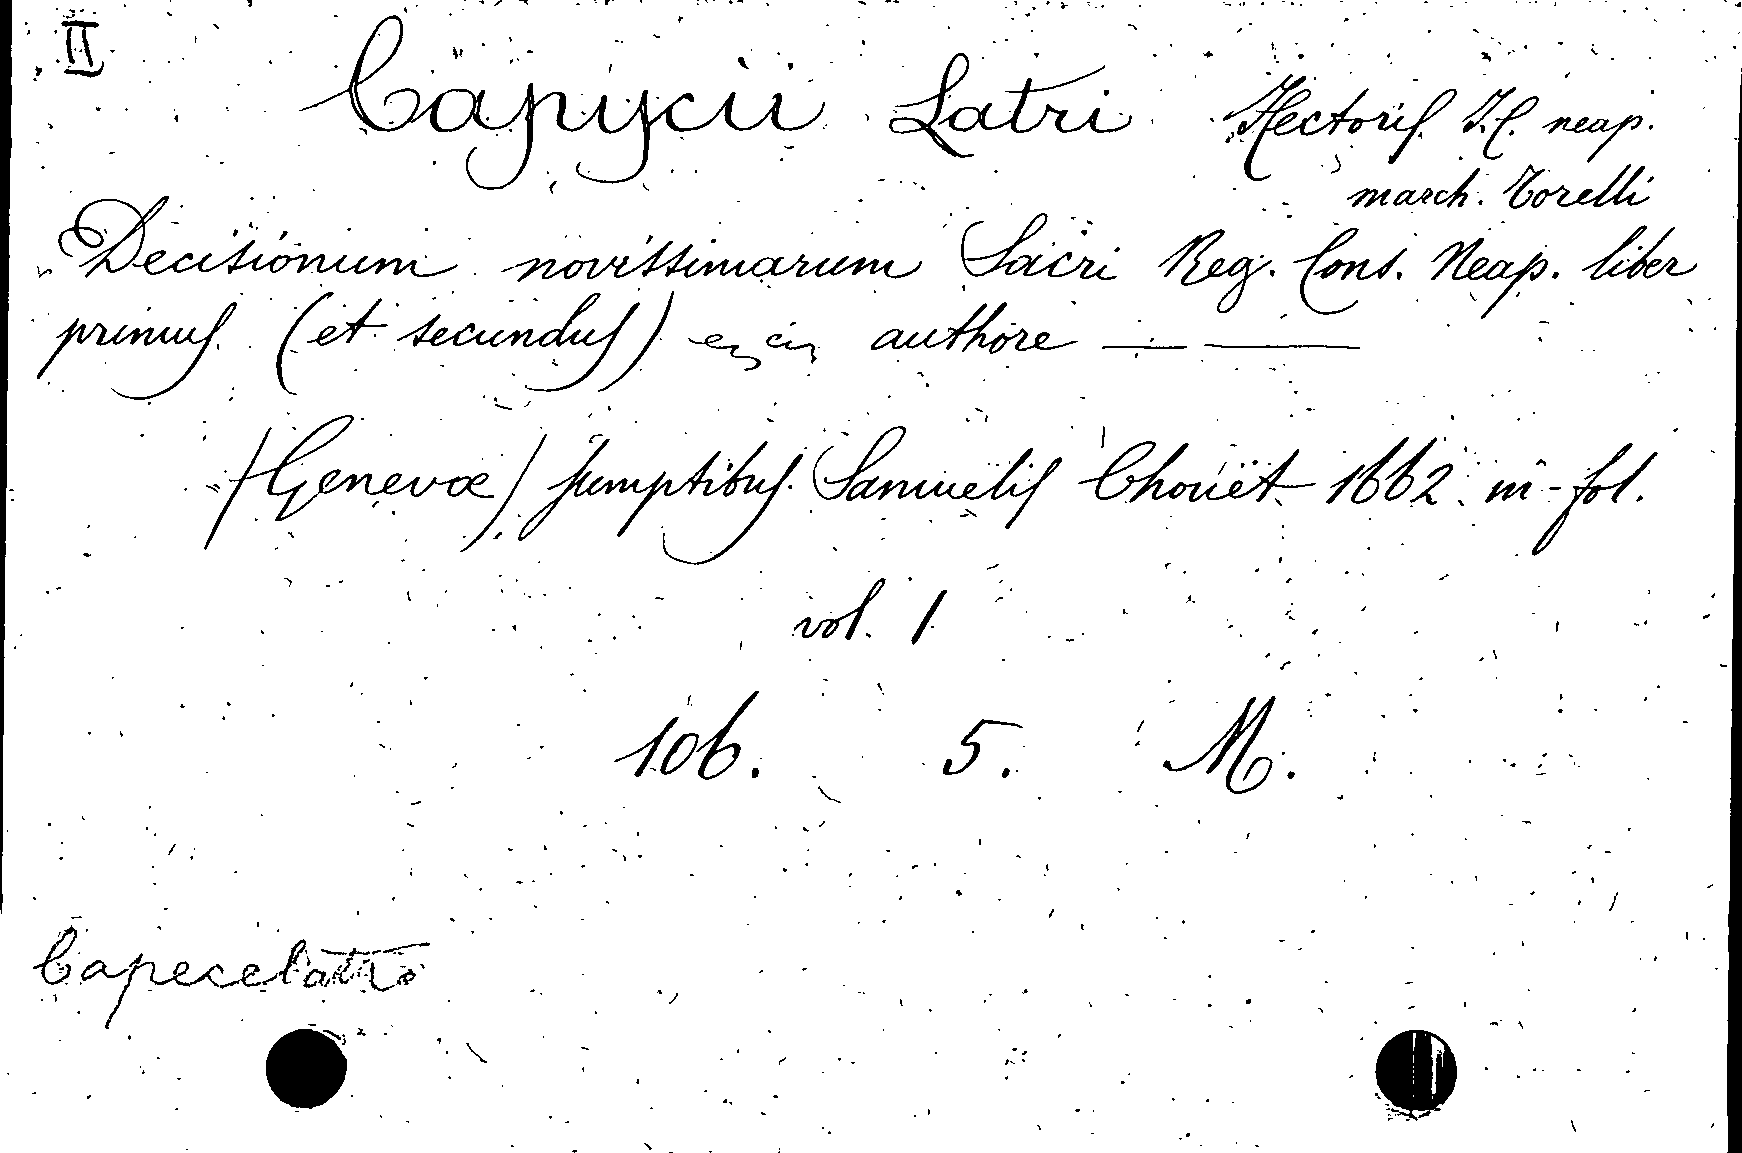 II
Capycii Latri Hectoris J.C. neap.
march. Torelli
Decisionum novissimarum Sacri Reg. Cons. Neap. liber
primus (et secundus) authore — —
(Genevæ) sumptibus Samuelis Chouët 1662 in-fol.
vol. 1
106. 5. M.
Capecelatro